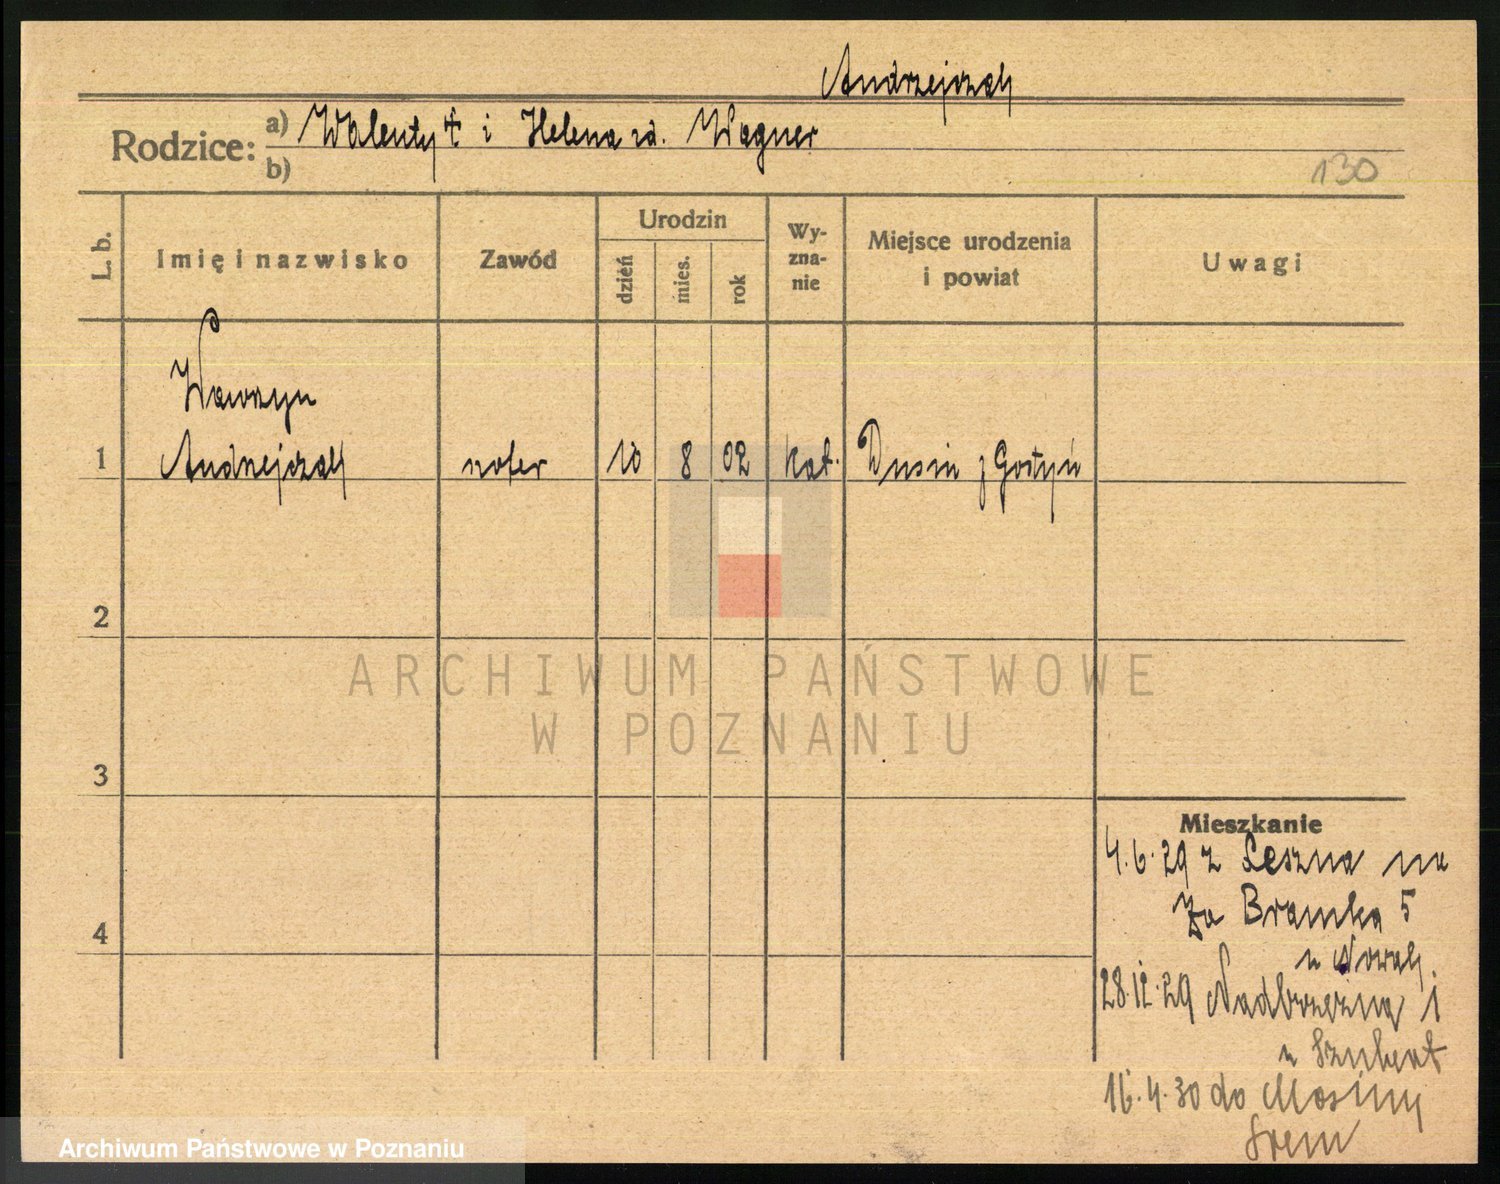 Andrzejczak
Rodzice: a) Walenty † i Helena zd. Wagner
b)
130
L. b. Imię i nazwisko Zawód Urodzin dzień mies. rok Wy-zna-nie Miejsce urodzenia i powiat Uwagi
Wawrzyn
1 Andrzejczak szofer 10 8 02 kat. Dusin Gostyń
2
ARCHIWUM PAŃSTWOWE
W POZNANIU
3
Mieszkanie
4.6.29 z Leszna na
Za Bramka 5
4
u Nowak
28.12.29 Nadbrzeżna 1
u Szubert
16.4.30 do Mosiny
Śrem
Archiwum Państwowe w Poznaniu